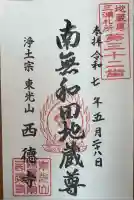 地蔵尊
三浦札所
第三十二番
奉拝 令和 七 年 五月 二十八日
南無和田地蔵尊
浄土宗 東光山 西徳寺